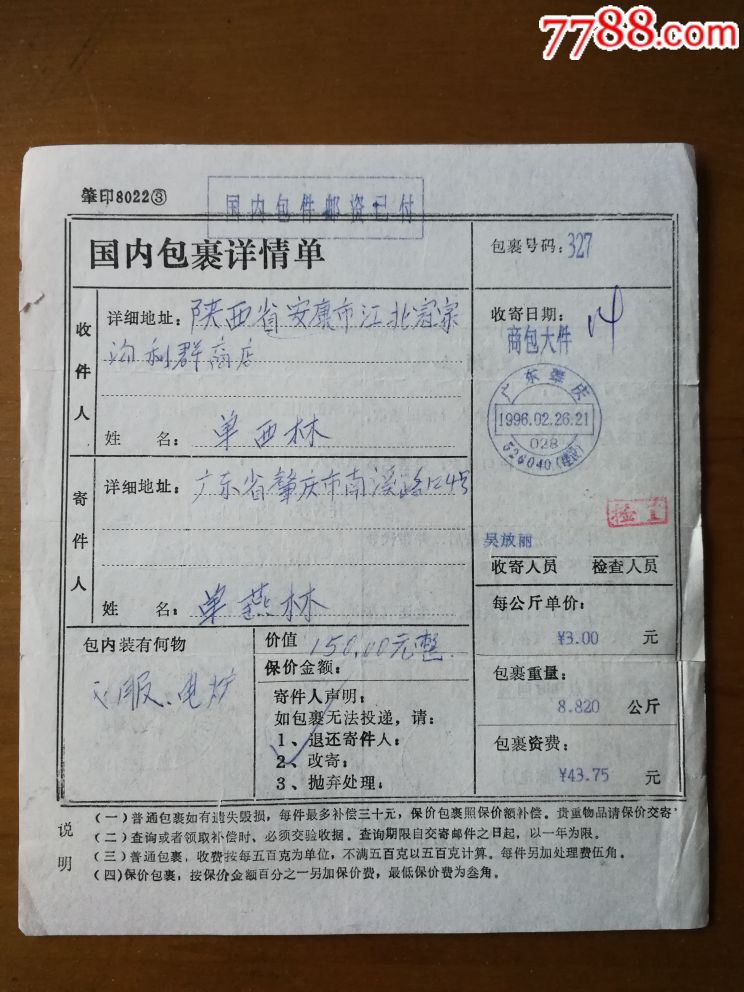 7788.com
肇印8022③
国内包件邮资已付
国内包裹详情单
包裹号码:327
收件人
详细地址:陕西省安康市江北寇家
沟利群商店
姓 名:单西林
收寄日期:
商包大件
广东肇庆
1996.02.26.21
028
526040
寄件人
详细地址:广东省肇庆市南溪路124号
姓 名:单燕林
检查
吴放丽
收寄人员 检查人员
每公斤单价:
¥3.00 元
包裹重量:
8.820 公斤
包裹资费:
¥43.75 元
包内装有何物
衣服、电炉
价值 150.00元整.
保价金额:
寄件人声明:
如包裹无法投递,请:
1、退还寄件人:
2、改寄:
3、抛弃处理:
说明
(一)普通包裹如有遗失毁损,每件最多补偿三十元,保价包裹照保价额补偿。贵重物品请保价交寄
(二)查询或者领取补偿时、必须交验收据。查询期限自交寄邮件之日起,以一年为限。
(三)普通包裹,收费按每五百克为单位,不满五百克以五百克计算。每件另加处理费伍角。
(四)保价包裹,按保价金额百分之一另加保价费,最低保价费为叁角。